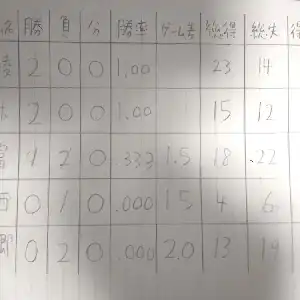 名 勝 負 分 勝率 ゲーム差 総得 総失 得
2 0 0 1.00 23 14
2 0 0 1.00 15 12
1 2 0 .333 1.5 18 22
西 0 1 0 .000 1.5 4 6
即 0 2 0 .000 2.0 13 19